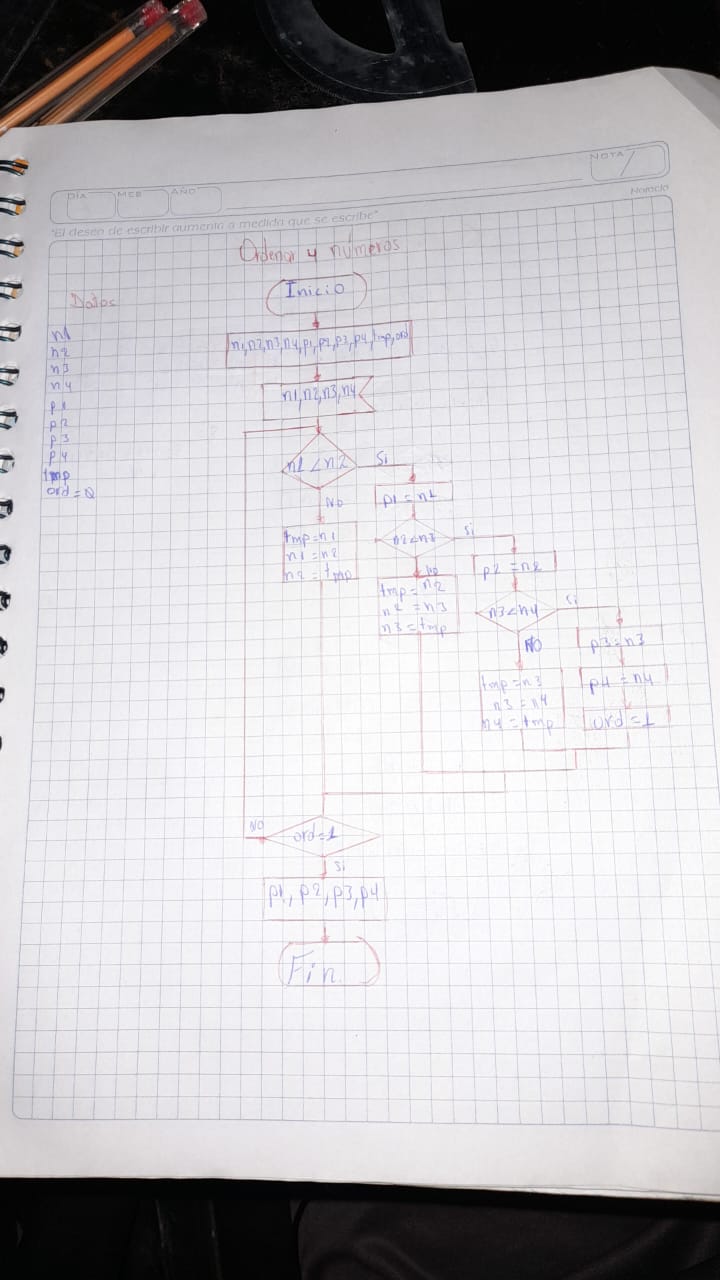 NOTA
DÍA MES AÑO
Norma
"El deseo de escribir aumenta a medida que se escribe"
Ordenar 4 números
Inicio
Datos
n1
n2
n3
n4
p1
p2
p3
p4
tmp
ord=0
n1,n2,n3,n4,p1,p2,p3,p4,tmp,ord
n1,n2,n3,n4
n1<n2
Si
NO
p1=n1
tmp=n1
n1=n2
n2=tmp
n2<n3
Si
No
p2=n2
tmp=n2
n2=n3
n3=tmp
n3<n4
Si
NO
p3=n3
tmp=n3
n3=n4
n4=tmp
p4=n4
ord=1
NO
ord=1
Si
p1, p2, p3, p4
Fin.